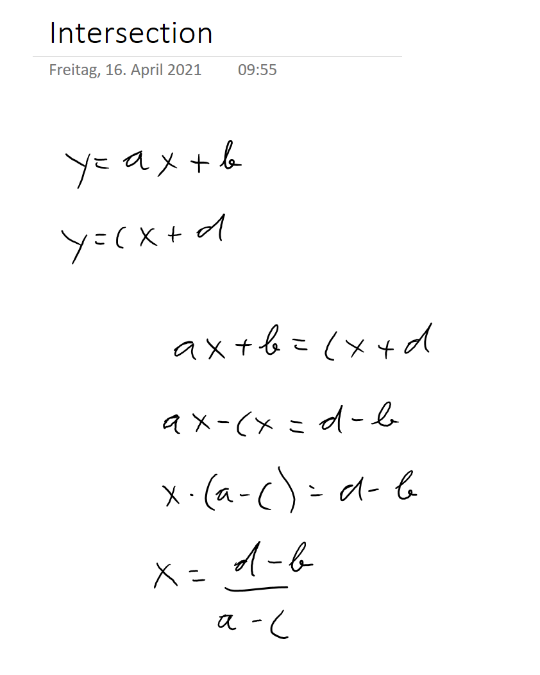 Intersection
Freitag, 16. April 2021 09:55
y=ax+b
y=cx+d
ax+b=cx+d
ax-cx=d-b
x·(a-c)=d-b
x= d-b
a-c